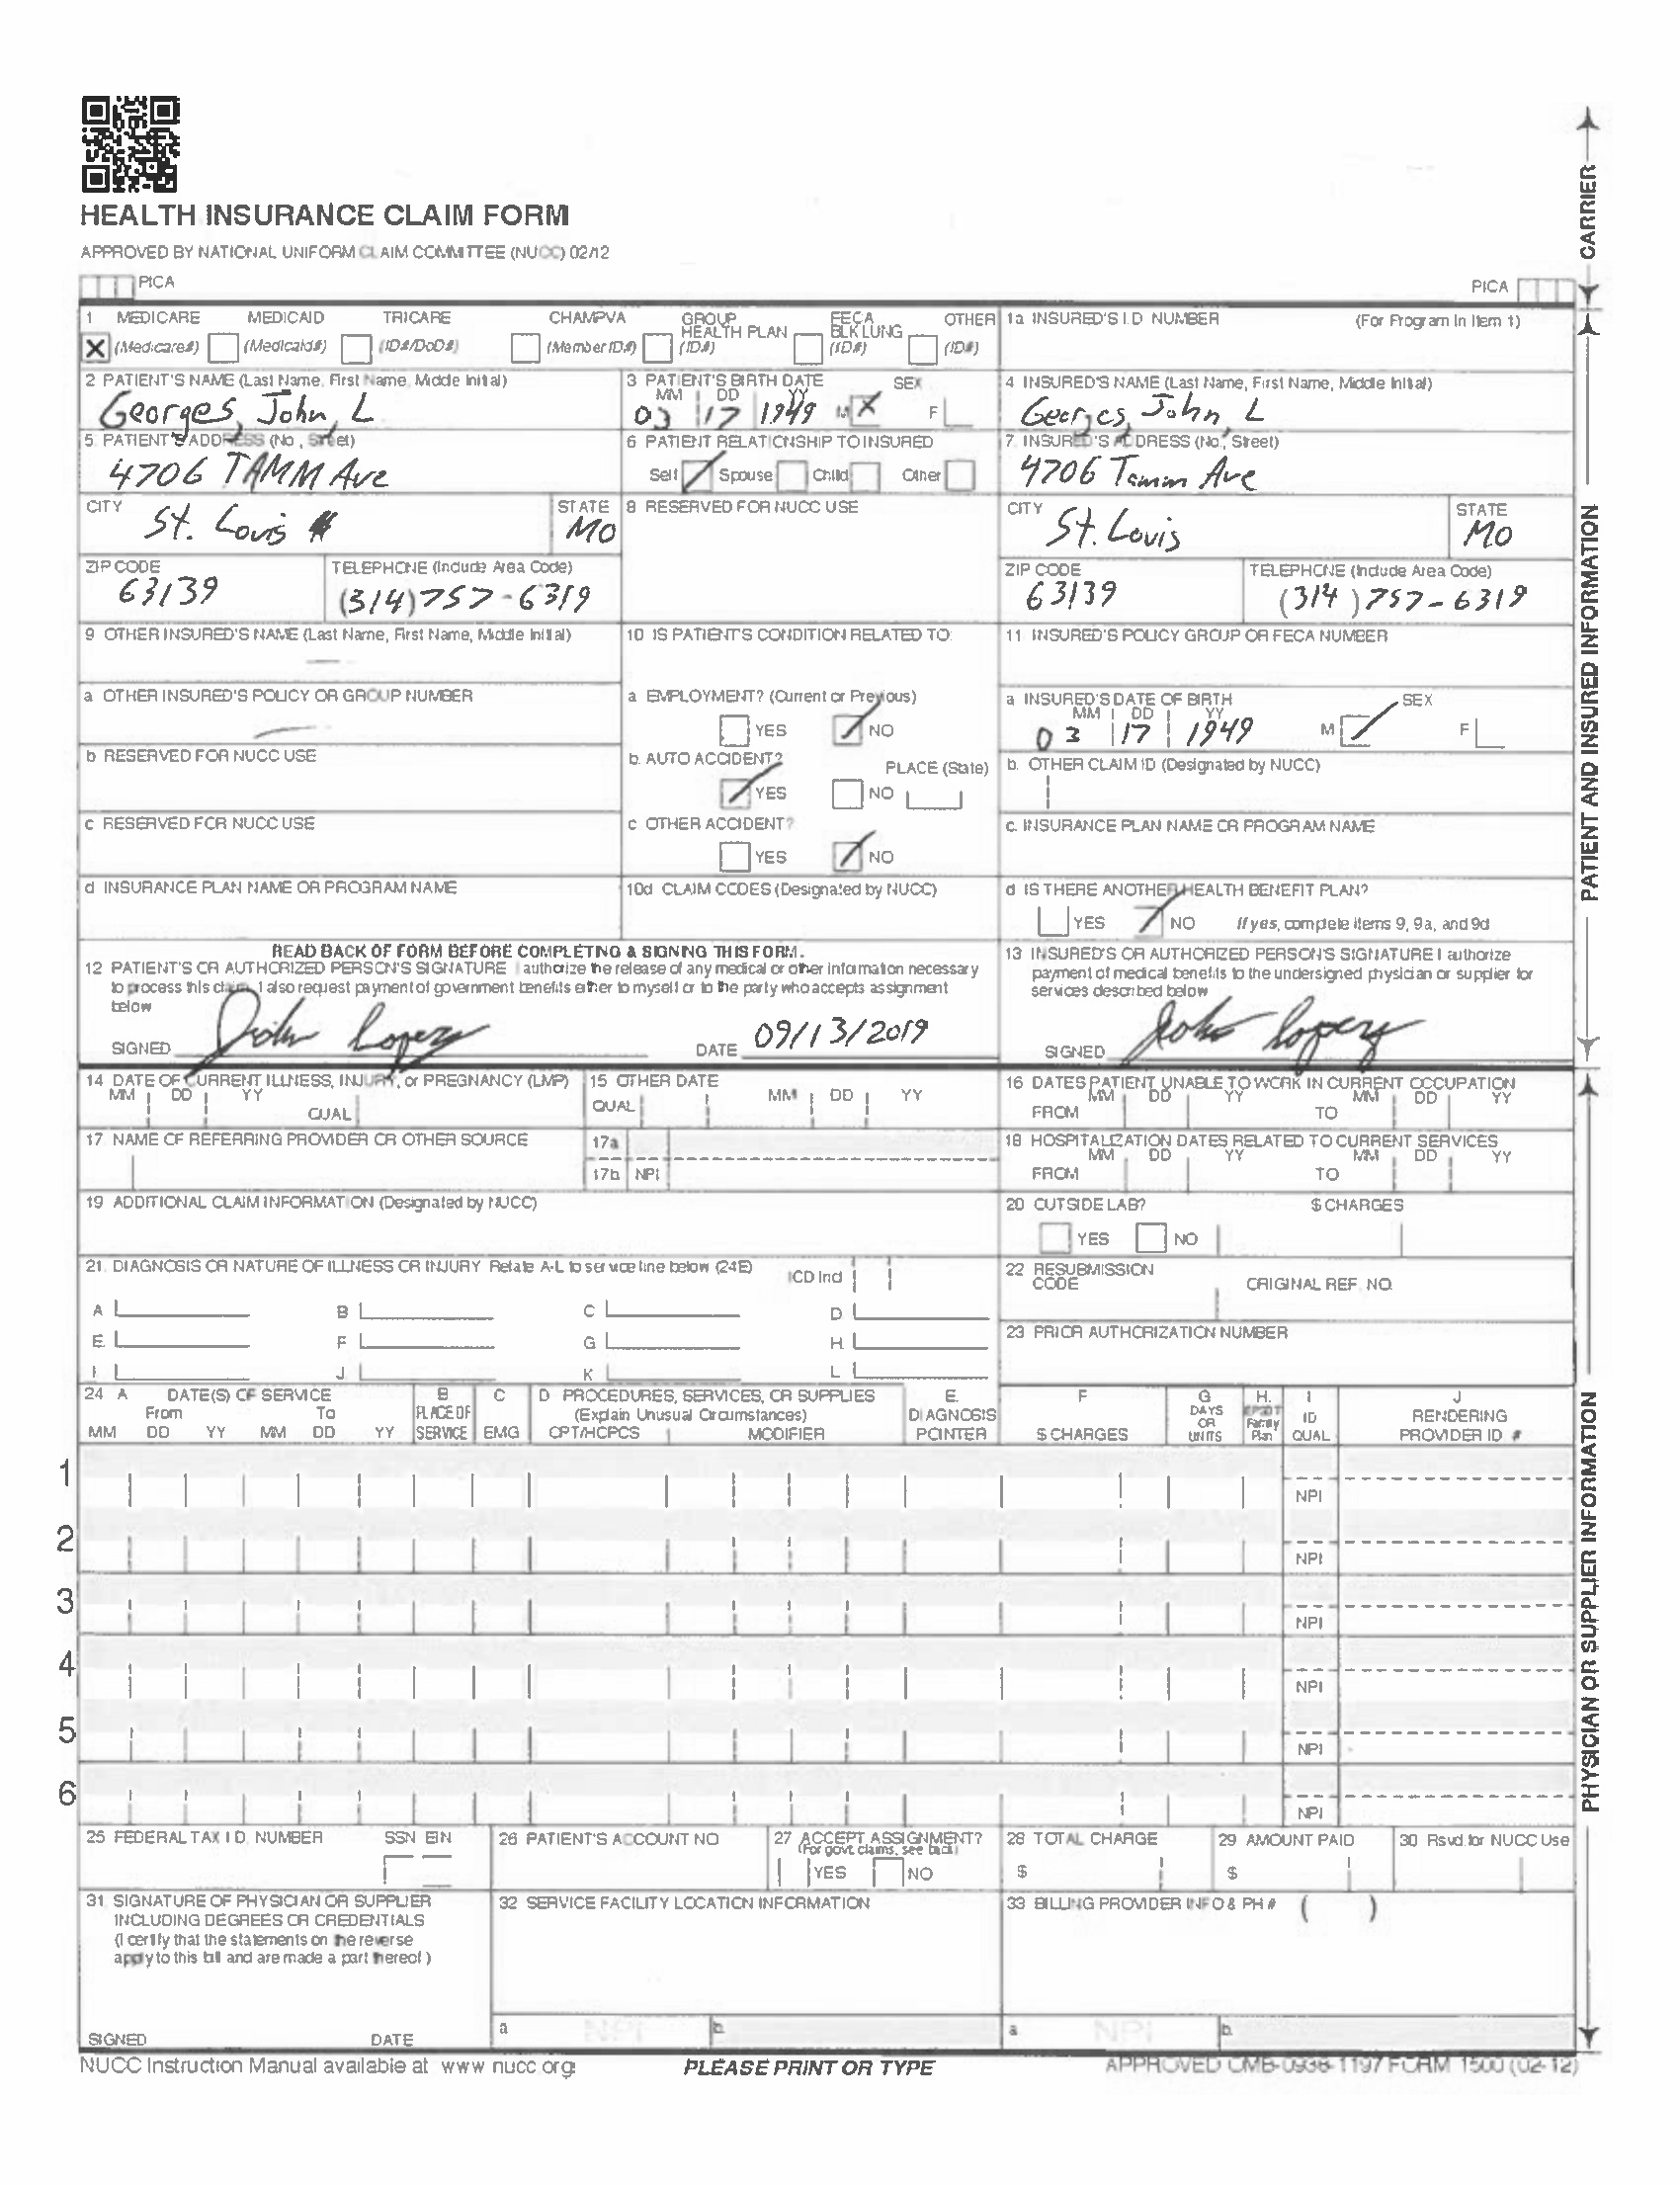 HEALTH INSURANCE CLAIM FORM
APPROVED BY NATIONAL UNIFORM CLAIM COMMITTEE (NUCC) 02/12
PICA
PICA
CARRIER
1 MEDICARE MEDICAID TRICARE CHAMPVA GROUP HEALTH PLAN FECA BLK LUNG OTHER
X (Medicare#) (Medicaid#) (ID#/DoD#) (Member ID#) (ID#) (ID#) (ID#)
1a INSURED'S I.D NUMBER (For Program In Item 1)
2 PATIENT'S NAME (Last Name, First Name, Middle Initial)
Georges, John, L
3 PATIENT'S BIRTH DATE SEX
MM DD YY
03 17 1949 M X F
4 INSURED'S NAME (Last Name, First Name, Middle Initial)
Georges, John, L
5. PATIENT'S ADDRESS (No., Street)
4706 TAMM Ave
6 PATIENT RELATIONSHIP TO INSURED
Self Spouse Child Other
7. INSURED'S ADDRESS (No., Street)
4706 Tamm Ave
CITY STATE
St. Louis MO
8 RESERVED FOR NUCC USE
CITY STATE
St. Louis MO
ZIP CODE TELEPHONE (Include Area Code)
63139 (314) 757-6319
ZIP CODE TELEPHONE (Include Area Code)
63139 (314) 757-6319
9 OTHER INSURED'S NAME (Last Name, First Name, Middle Initial)
10 IS PATIENT'S CONDITION RELATED TO:
11 INSURED'S POLICY GROUP OR FECA NUMBER
a OTHER INSURED'S POLICY OR GROUP NUMBER
a EMPLOYMENT? (Current or Previous)
YES NO
a INSURED'S DATE OF BIRTH SEX
MM DD YY
03 17 1949 M F
b RESERVED FOR NUCC USE
b. AUTO ACCIDENT? PLACE (State)
YES NO
b. OTHER CLAIM ID (Designated by NUCC)
c RESERVED FOR NUCC USE
c OTHER ACCIDENT?
YES NO
c. INSURANCE PLAN NAME OR PROGRAM NAME
d INSURANCE PLAN NAME OR PROGRAM NAME
10d CLAIM CODES (Designated by NUCC)
d IS THERE ANOTHER HEALTH BENEFIT PLAN?
YES NO If yes, complete items 9, 9a, and 9d
READ BACK OF FORM BEFORE COMPLETING & SIGNING THIS FORM.
12 PATIENT'S OR AUTHORIZED PERSON'S SIGNATURE I authorize the release of any medical or other information necessary
to process this claim. I also request payment of government benefits either to myself or to the party who accepts assignment
below
SIGNED John Lopez DATE 09/13/2019
13 INSURED'S OR AUTHORIZED PERSON'S SIGNATURE I authorize
payment of medical benefits to the undersigned physician or supplier for
services described below
SIGNED John Lopez
PATIENT AND INSURED INFORMATION
14 DATE OF CURRENT ILLNESS, INJURY, or PREGNANCY (LMP)
MM DD YY QUAL
15 OTHER DATE
QUAL MM DD YY
16 DATES PATIENT UNABLE TO WORK IN CURRENT OCCUPATION
MM DD YY MM DD YY
FROM TO
17 NAME OF REFERRING PROVIDER OR OTHER SOURCE
17a
17b NPI
18 HOSPITALIZATION DATES RELATED TO CURRENT SERVICES
MM DD YY MM DD YY
FROM TO
19 ADDITIONAL CLAIM INFORMATION (Designated by NUCC)
20 OUTSIDE LAB? $ CHARGES
YES NO
21. DIAGNOSIS OR NATURE OF ILLNESS OR INJURY Relate A-L to service line below (24E) ICD Ind
A B C D
E. F G H.
I. J. K L
22 RESUBMISSION CODE ORIGINAL REF. NO.
23 PRIOR AUTHORIZATION NUMBER
24 A DATE(S) OF SERVICE B C D PROCEDURES, SERVICES, OR SUPPLIES E. F G H. I J
From To PLACE OF (Explain Unusual Circumstances) DIAGNOSIS DAYS OR UNITS EPSDT Family Plan ID RENDERING
MM DD YY MM DD YY SERVICE EMG CPT/HCPCS MODIFIER POINTER $ CHARGES QUAL PROVIDER ID #
1
NPI
2
NPI
3
NPI
4
NPI
5
NPI
6
NPI
25 FEDERAL TAX I D. NUMBER SSN EIN
26 PATIENT'S ACCOUNT NO
27 ACCEPT ASSIGNMENT?
(For govt. claims, see back)
YES NO
28 TOTAL CHARGE
$
29 AMOUNT PAID
$
30 Rsvd for NUCC Use
31. SIGNATURE OF PHYSICIAN OR SUPPLIER
INCLUDING DEGREES OR CREDENTIALS
(I certify that the statements on the reverse
apply to this bill and are made a part thereof.)
SIGNED DATE
32 SERVICE FACILITY LOCATION INFORMATION
a NPI b.
33 BILLING PROVIDER INFO & PH # ( )
a NPI b.
PHYSICIAN OR SUPPLIER INFORMATION
NUCC Instruction Manual available at www nucc.org
PLEASE PRINT OR TYPE
APPROVED OMB-0938-1197 FORM 1500 (02-12)